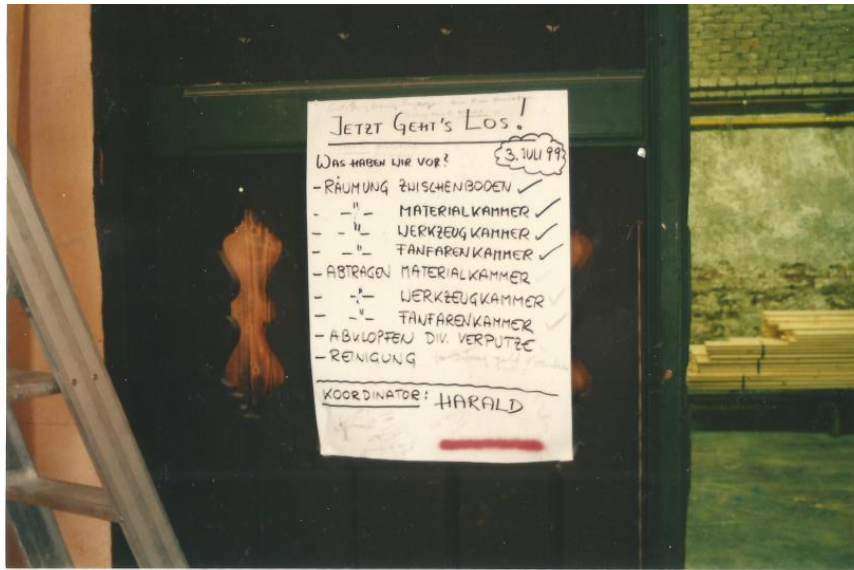 JETZT GEHT'S LOS!
3. JULI 99
WAS HABEN WIR VOR?
- RÄUMUNG ZWISCHENBODEN ✓
- -"- MATERIALKAMMER ✓
- -"- WERKZEUGKAMMER ✓
- -"- FANFARENKAMMER ✓
- ABTRAGEN MATERIALKAMMER
- -"- WERKZEUGKAMMER ✓
- -"- FANFARENKAMMER ✓
- ABKLOPFEN DIV. VERPUTZE
- REINIGUNG
KOORDINATOR: HARALD